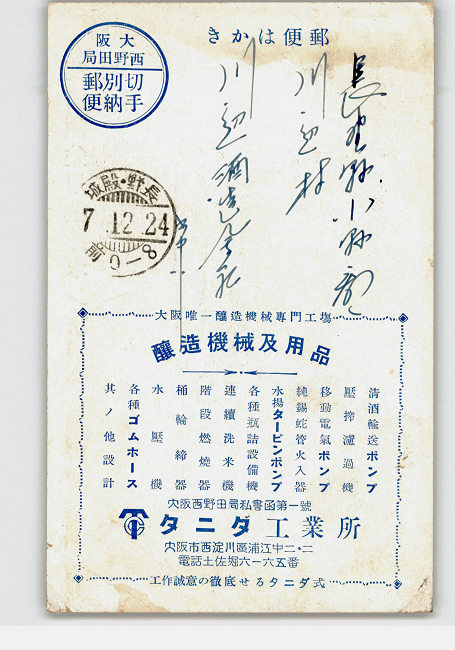 郵便はかき
大阪
西野田局
切手別納郵便
長野縣小縣郡
川辺村
川辺酒造会社
長野・殿城
7.12.24
前0-8
大阪唯一釀造機械專門工場
釀造機械及用品
清酒輸送ポンプ
壓搾濾過機
移動電氣ポンプ
純錫蛇管火入器
水揚タービンポンプ
各種瓶詰設備機
連續洗米機
階段燃燒器
桶輪締器
水壓機
各種ゴムホース
其ノ他設計
大阪西野田局私書函第一號
タニダ工業所
大阪市西淀川區浦江中二・二
電話土佐堀六一六五番
工作誠意の徹底せるタニダ式